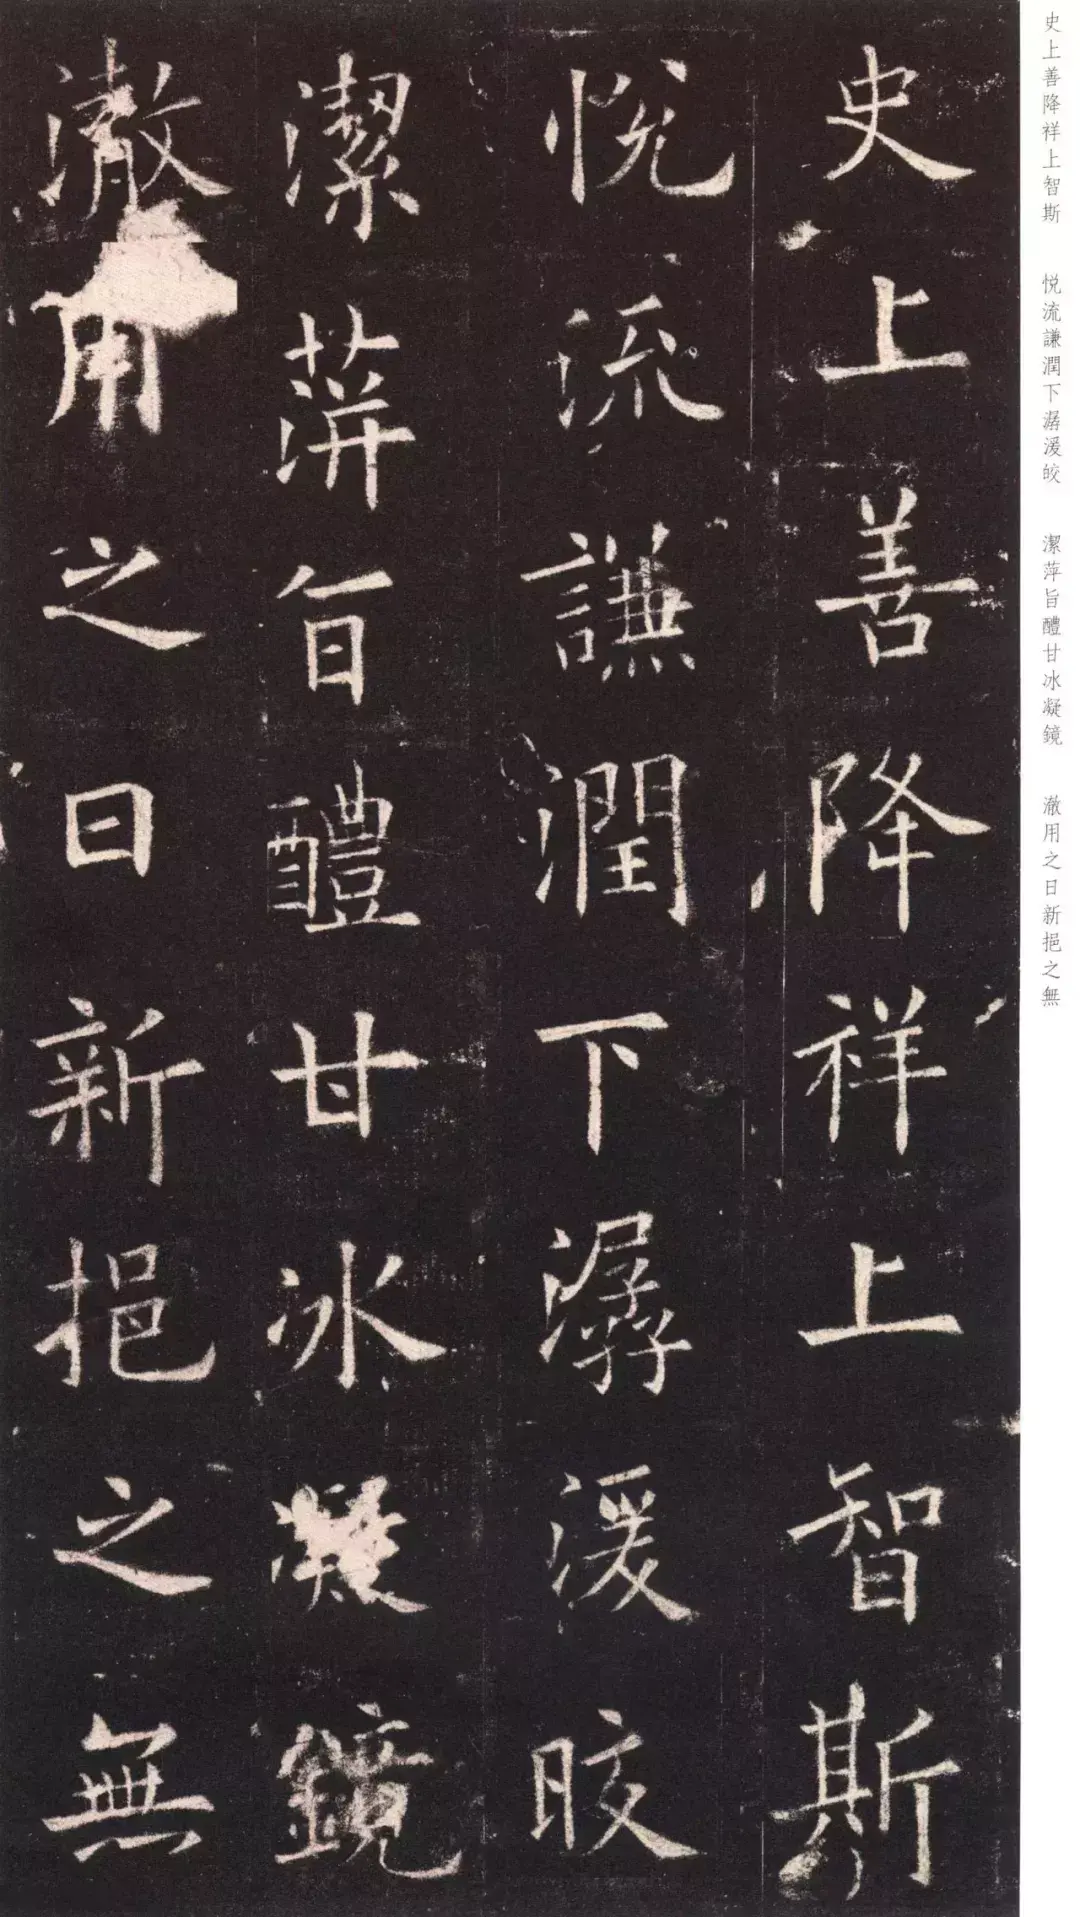 史上善降祥上智斯
悦流謙潤下潺湲皎
潔蓱旨醴甘冰凝鏡
澈用之日新挹之無
史上善降祥上智斯 悦流謙潤下潺湲皎 潔萍旨醴甘冰凝鏡 澈用之日新挹之無